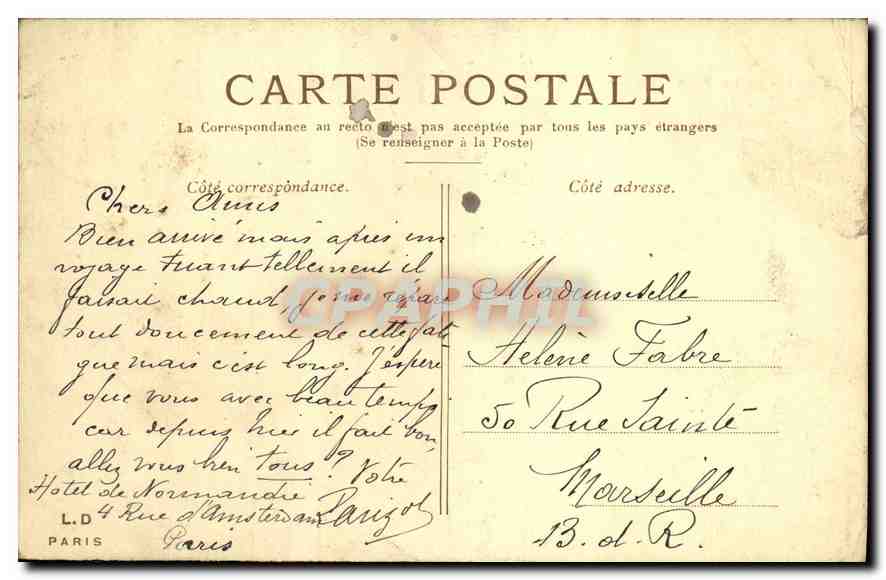 CARTE POSTALE
La Correspondance au recto n'est pas acceptée par tous les pays étrangers
(Se renseigner à la Poste)
Côté correspondance.
Chers Amis
Bien arrivé mais après un
voyage tuant tellement il
faisait chaud, je me répare
tout doucement de cette fati
gue mais c'est long. J'espère
que vous avec beau temps
car depuis hier il fait bon
allez vous bien tous? Votre
Hotel de Normandie
4 Rue d'Amsterdam
Paris
L.D
PARIS
Côté adresse.
Mademoiselle
Helène Fabre
50 Rue Sainte
Marseille
B.d.R.
CPAPHIL